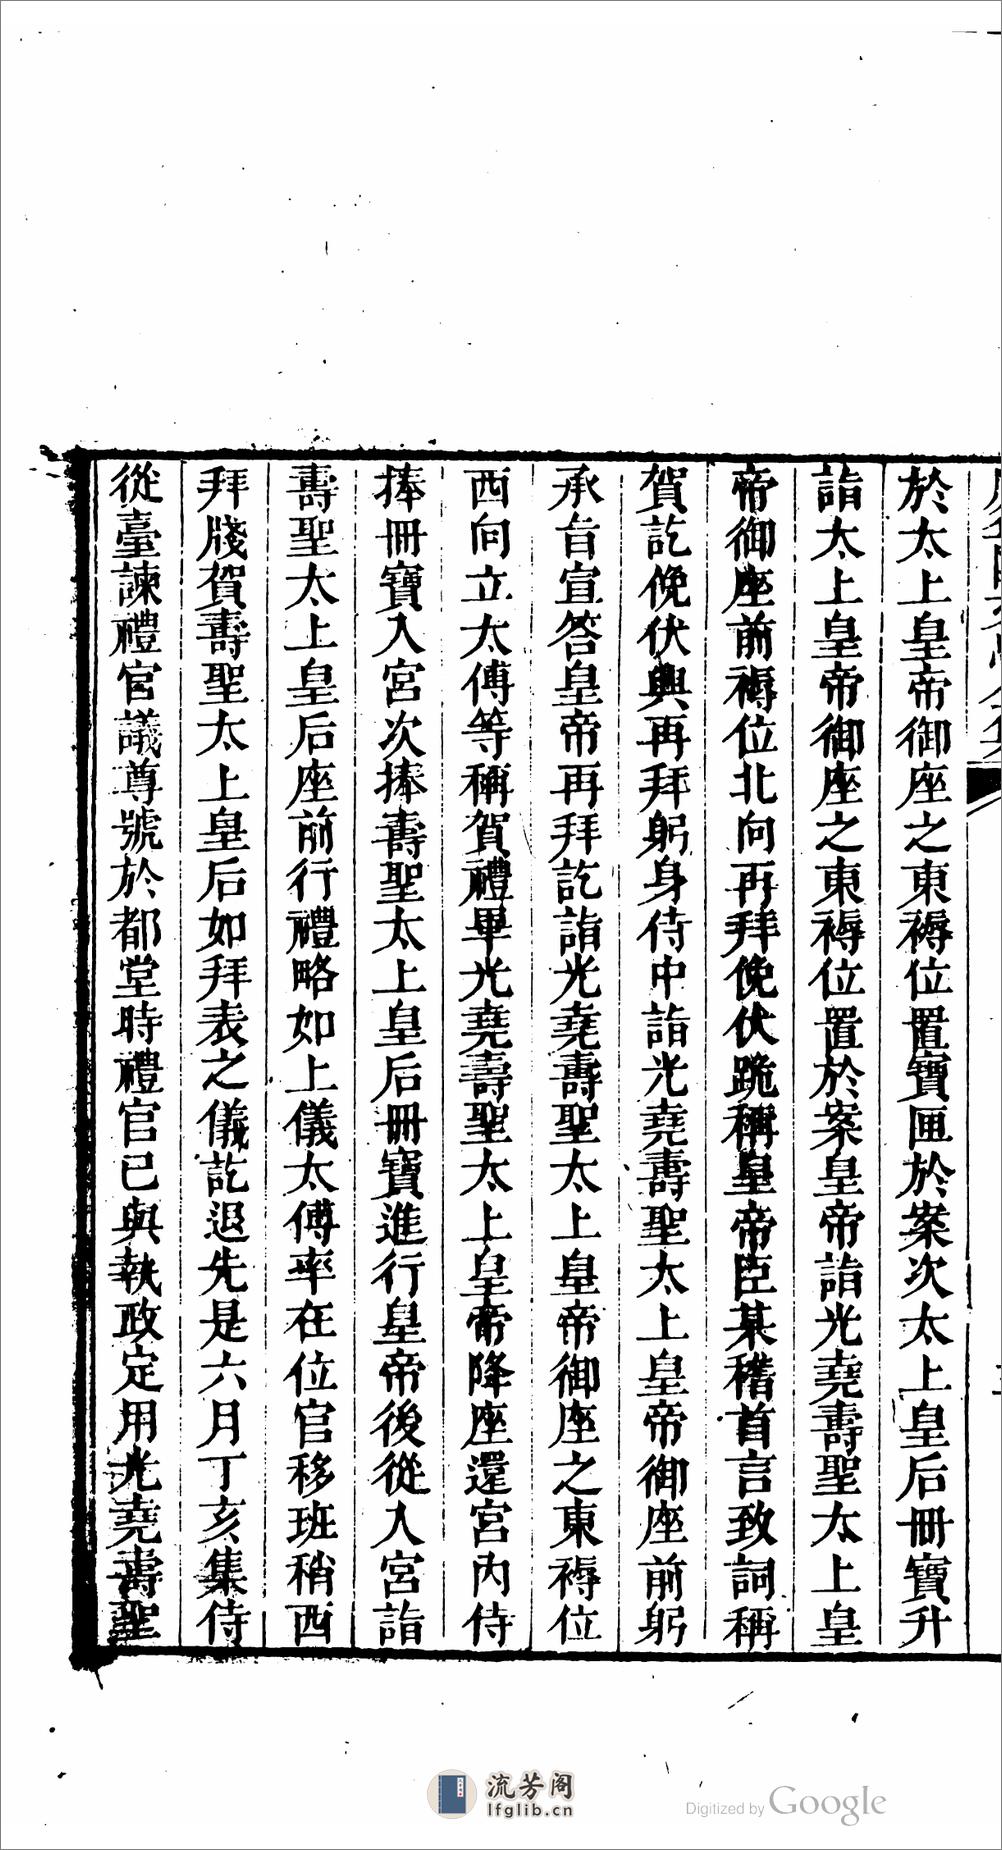 於太上皇帝御座之東褥位置寶匣於案次太上皇后冊寶升
詣太上皇帝御座之東褥位置於案皇帝詣光堯壽聖太上皇
帝御座前褥位北向再拜俛伏跪稱皇帝臣某稽首言致詞稱
賀訖俛伏興再拜躬身侍中詣光堯壽聖太上皇帝御座前躬
承旨宣答皇帝再拜訖詣光堯壽聖太上皇帝御座之東褥位
西向立太傅等稱賀禮畢光堯壽聖太上皇帝降座還宮內侍
捧冊寶入宮次捧壽聖太上皇后冊寶進行皇帝後從入宮詣
壽聖太上皇后座前行禮略如上儀太傅率在位官移班稍西
拜牋賀壽聖太上皇后如拜表之儀訖退先是六月丁亥集侍
從臺諫禮官議尊號於都堂時禮官已與執政定用光堯壽聖
流芳阁
lfglib.cn
Digitized by Google